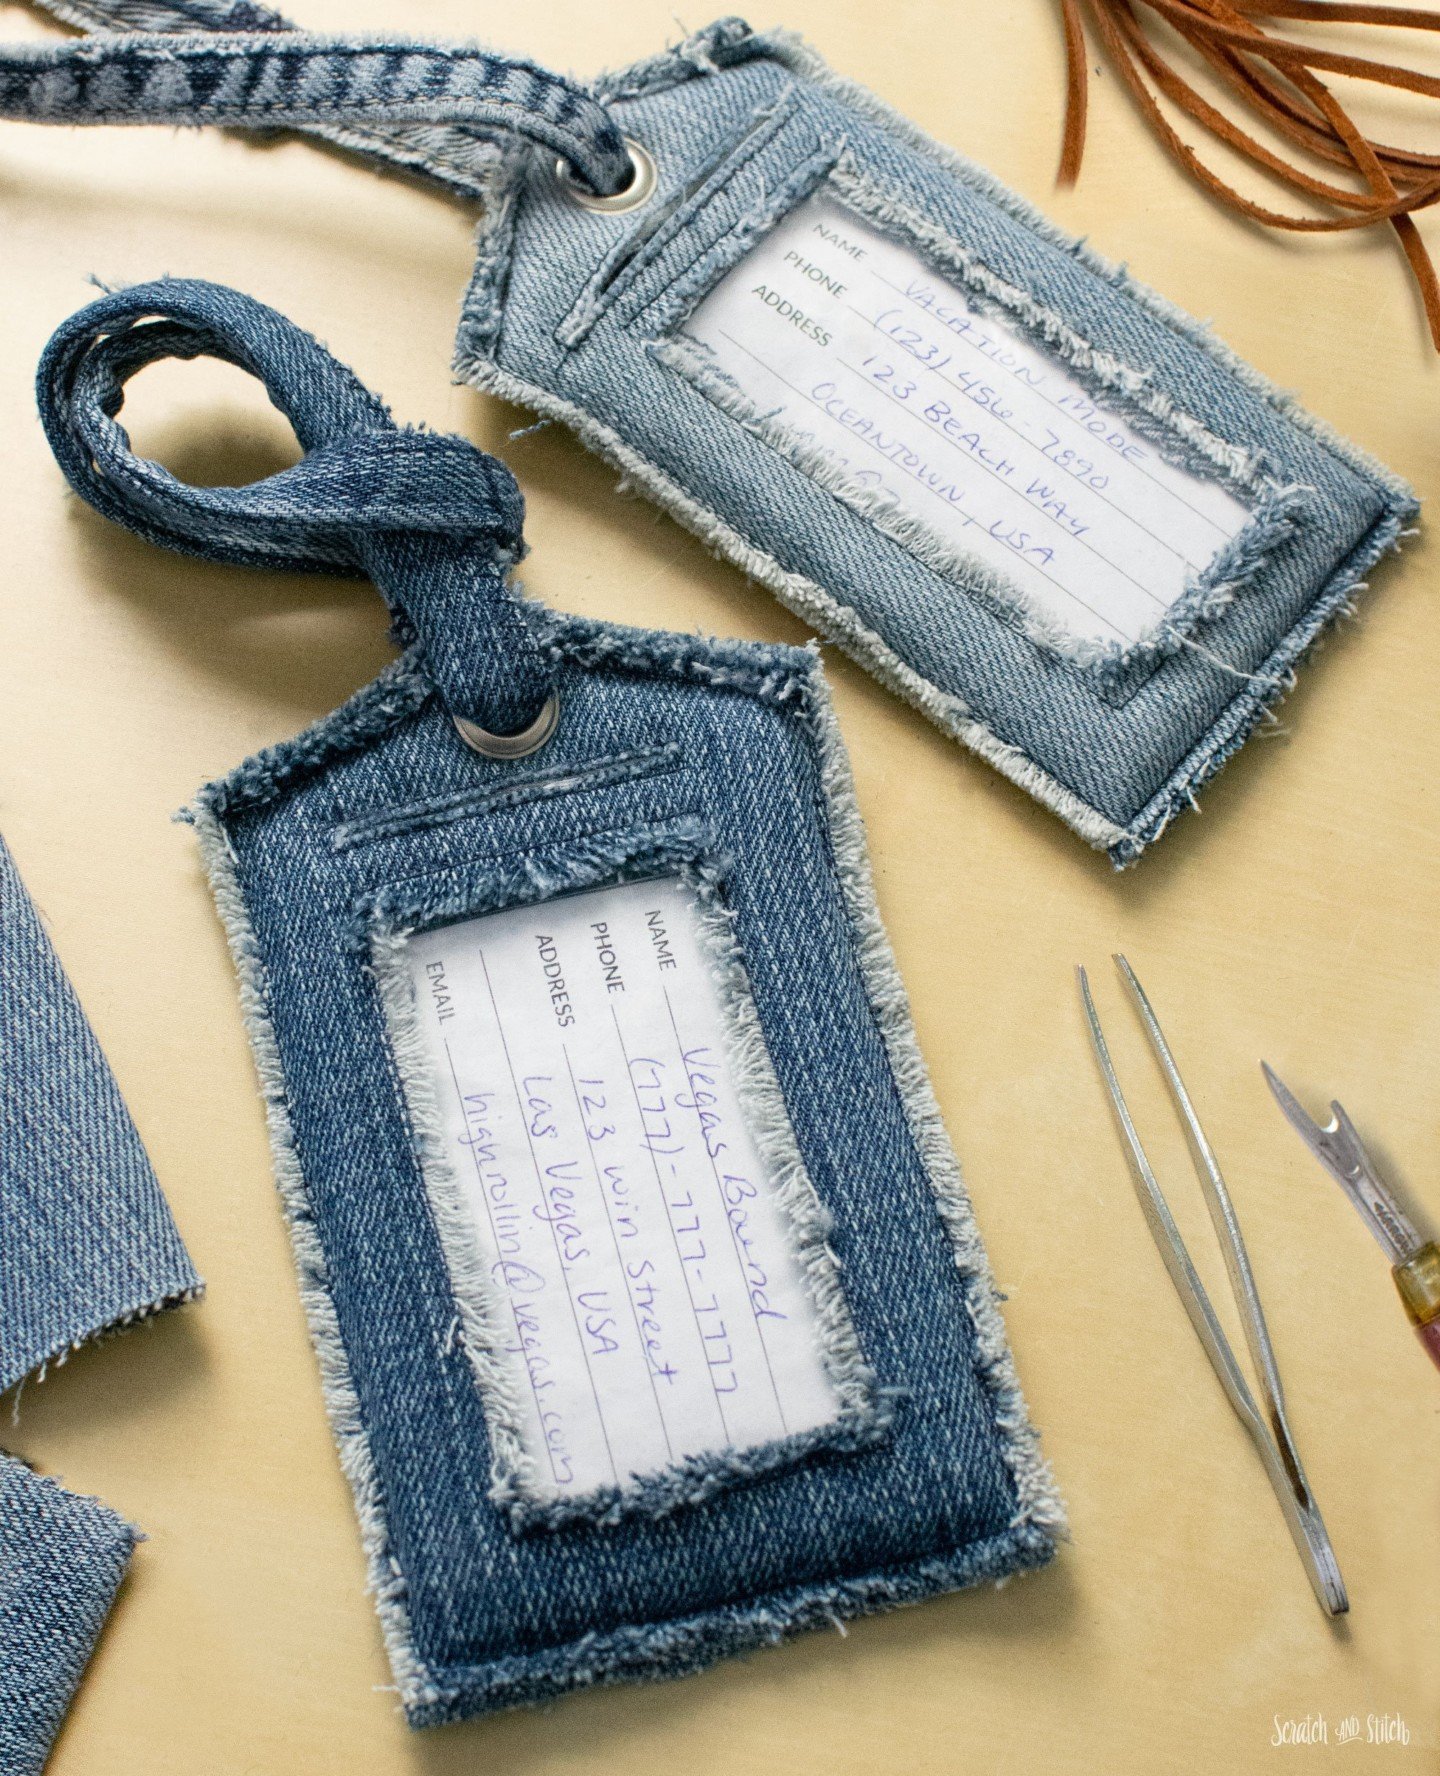 NAME VACATION MODE
PHONE (123) 456-7890
ADDRESS 123 BEACH WAY
OCEANTOWN, USA
NAME Vegas Bound
PHONE (777)-777-7777
ADDRESS 123 Win Street
Las Vegas, USA
EMAIL highrollin@vegas.com
Scratch AND Stitch